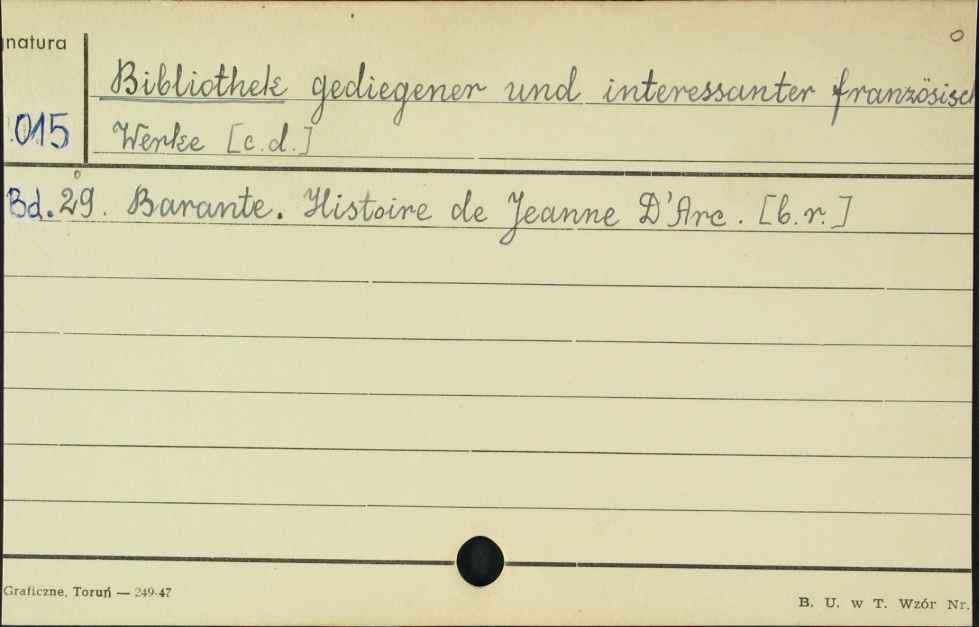 natura
Bibliothek gediegener und interessanter französisch
015
Werke [c.d.]
Bd. 29. Barante. Histoire de Jeanne D'Arc. [b.r.]
Graficzne, Toruń — 249-47
B. U. w T. Wzór Nr.